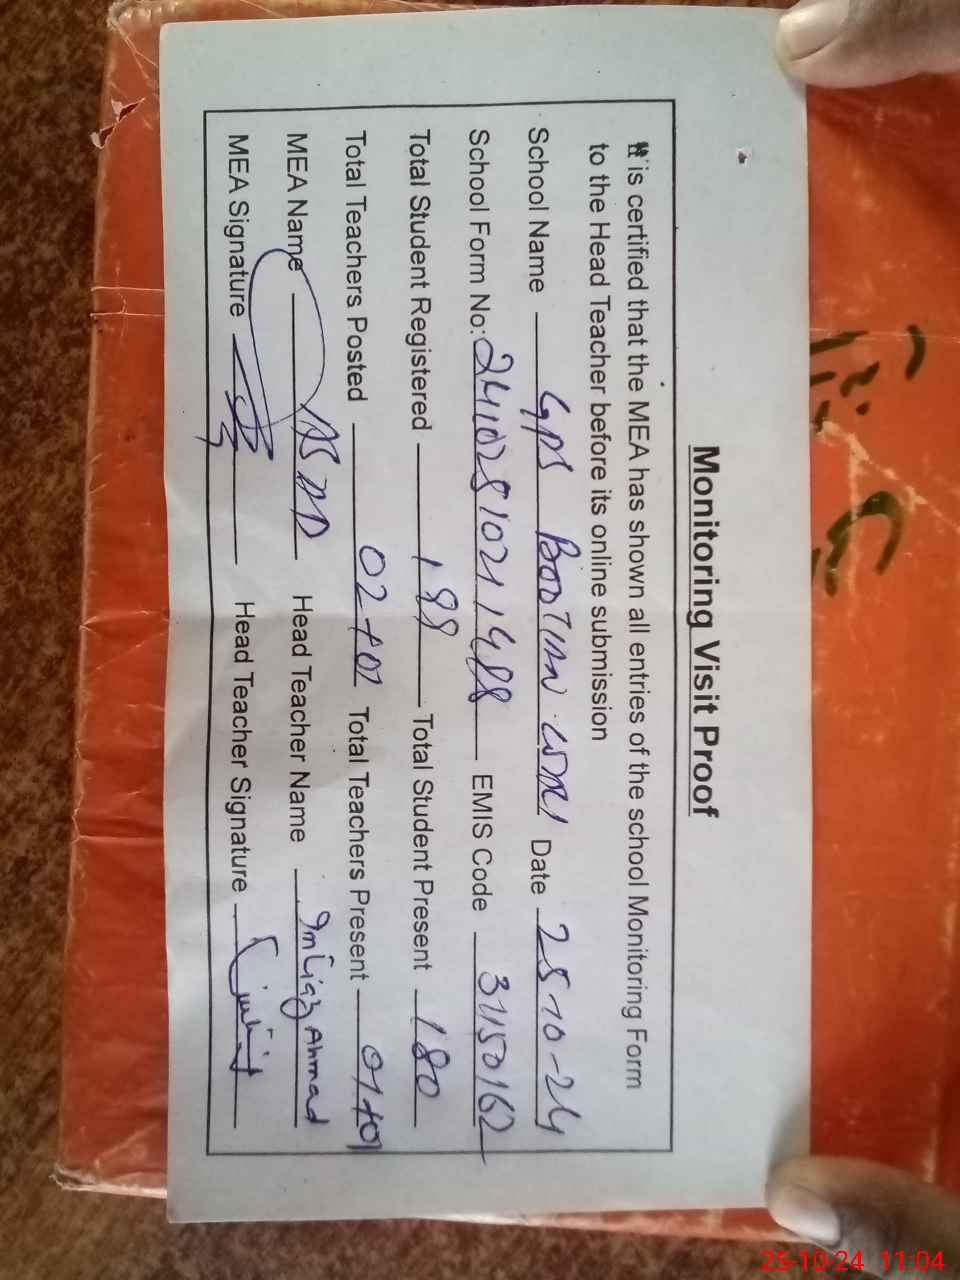 Monitoring Visit Proof
It is certified that the MEA has shown all entries of the school Monitoring Form
to the Head Teacher before its online submission
School Name GPS Date 25-10-24
School Form No: 241102510211488 EMIS Code 31150162
Total Student Registered 188 Total Student Present 180
Total Teachers Posted 02+01 Total Teachers Present 01+01
MEA Name ASAD Head Teacher Name Imtiaz Ahmad
MEA Signature Head Teacher Signature
25-10-24 11:04